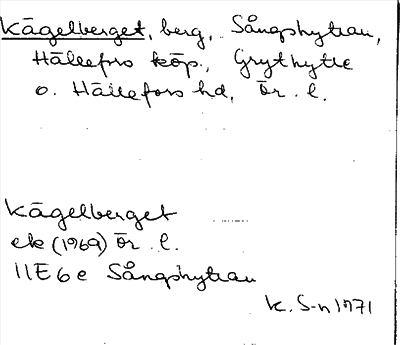 Kägelberget, berg, Sångshyttan,
Hällefors köp., Grythytte
o. Hällefors hd, Ör. l.
Kägelberget
ek (1969) Ör. l.
11E6e Sångshyttan
K. S-n 1971